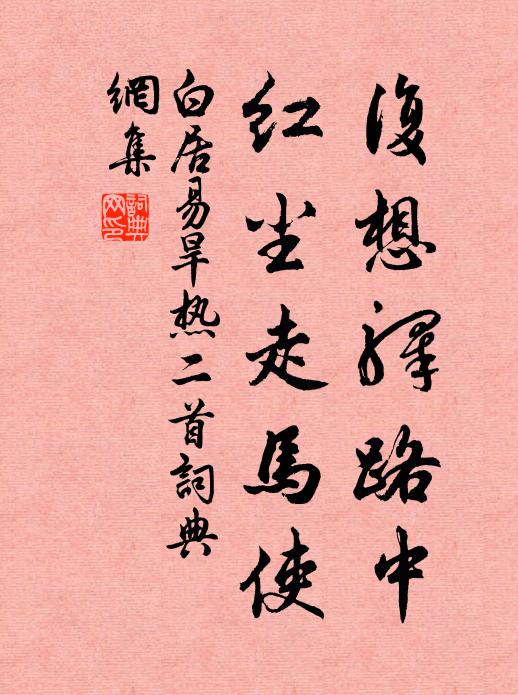 復想驛路中
红尘走馬使
白居易旱热二首詞典
網集
詞典
网印